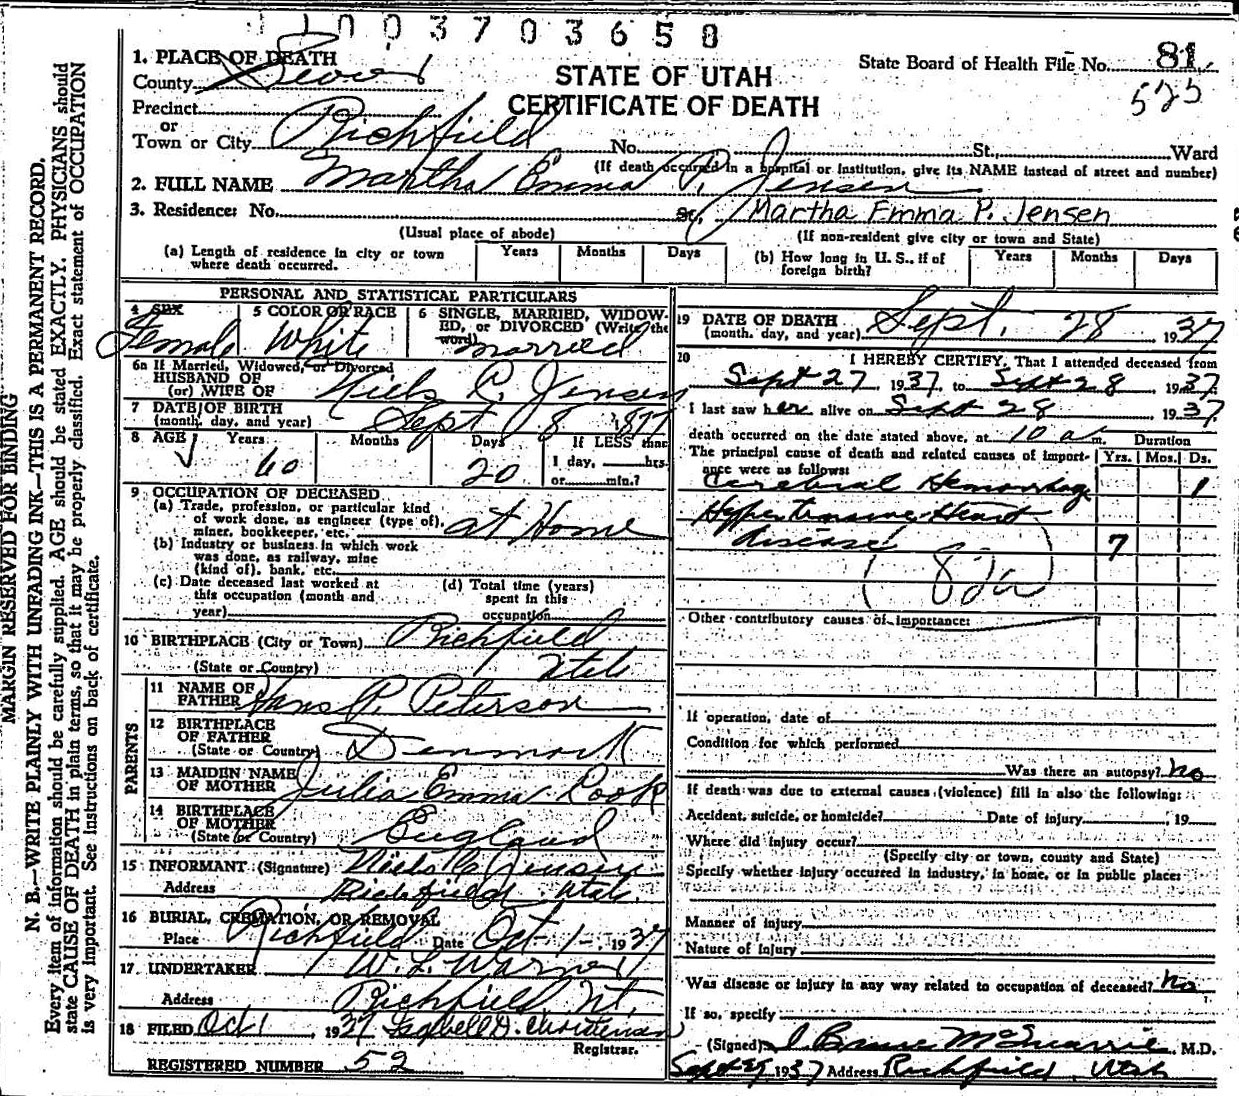 1003703658
1. PLACE OF DEATH
County Sevier
STATE OF UTAH
CERTIFICATE OF DEATH
State Board of Health File No. 81
525
Precinct
or
Town or City Richfield No. St., Ward
(If death occurred in a hospital or institution, give its NAME instead of street and number)
2. FULL NAME Martha Emma P. Jensen
3. Residence: No. St. Martha Emma P. Jensen
(Usual place of abode) (If non-resident give city or town and State)
(a) Length of residence in city or town where death occurred. Years Months Days
(b) How long in U. S., if of foreign birth? Years Months Days
PERSONAL AND STATISTICAL PARTICULARS
4 SEX Female
5 COLOR OR RACE White
6 SINGLE, MARRIED, WIDOWED, or DIVORCED (Write the word) married
6a If Married, Widowed, or Divorced
HUSBAND OF
(or) WIFE OF Niels C. Jensen
7 DATE OF BIRTH
(month, day, and year) Sept 8 1877
8 AGE Years Months Days If LESS than
60 20 1 day, hrs.
or min.?
9 OCCUPATION OF DECEASED
(a) Trade, profession, or particular kind
of work done, as engineer (type of),
miner, bookkeeper, etc. at Home
(b) Industry or business in which work
was done, as railway, mine
(kind of), bank, etc.
(c) Date deceased last worked at
this occupation (month and
year)
(d) Total time (years)
spent in this
occupation
10 BIRTHPLACE (City or Town) Richfield
(State or Country) Utah
PARENTS
11 NAME OF
FATHER Hans P. Peterson
12 BIRTHPLACE
OF FATHER
(State or Country) Denmark
13 MAIDEN NAME
OF MOTHER Julia Emma Cook
14 BIRTHPLACE
OF MOTHER
(State or Country) England
15 INFORMANT (Signature) Niels C Jensen
Address Richfield Utah.
16 BURIAL, CREMATION, OR REMOVAL
Place Richfield Date Oct 1 - 1937
17 UNDERTAKER W. L. Warner
Address Richfield Ut.
18 FILED Oct 1 1937 Isabell D. Christensen
Registrar.
REGISTERED NUMBER 52
19 DATE OF DEATH
(month, day, and year) Sept. 28 1937
20 I HEREBY CERTIFY, That I attended deceased from
Sept 27 1937, to Sept 28 1937
I last saw her alive on Sept 28 1937
death occurred on the date stated above, at 10 a m. Duration
The principal cause of death and related causes of importance were as follows: Yrs. Mos. Ds.
Cerebral Hemorrhage 1
Hypertensive Heart
disease 7
(82a)
Other contributory causes of importance:
If operation, date of
Condition for which performed
Was there an autopsy? no
If death was due to external causes (violence) fill in also the following:
Accident, suicide, or homicide? Date of injury 19
Where did injury occur?
(Specify city or town, county and State)
Specify whether injury occurred in industry, in home, or in public place:
Manner of injury
Nature of injury
Was disease or injury in any way related to occupation of deceased? no
If so, specify
(Signed) McQuarrie M.D.
Sept 29 1937 Address Richfield Utah
MARGIN RESERVED FOR BINDING
N. B.—WRITE PLAINLY WITH UNFADING INK—THIS IS A PERMANENT RECORD.
Every item of information should be carefully supplied. AGE should be stated EXACTLY. PHYSICIANS should
state CAUSE OF DEATH in plain terms, so that it may be properly classified. Exact statement of OCCUPATION
is very important. See instructions on back of certificate.